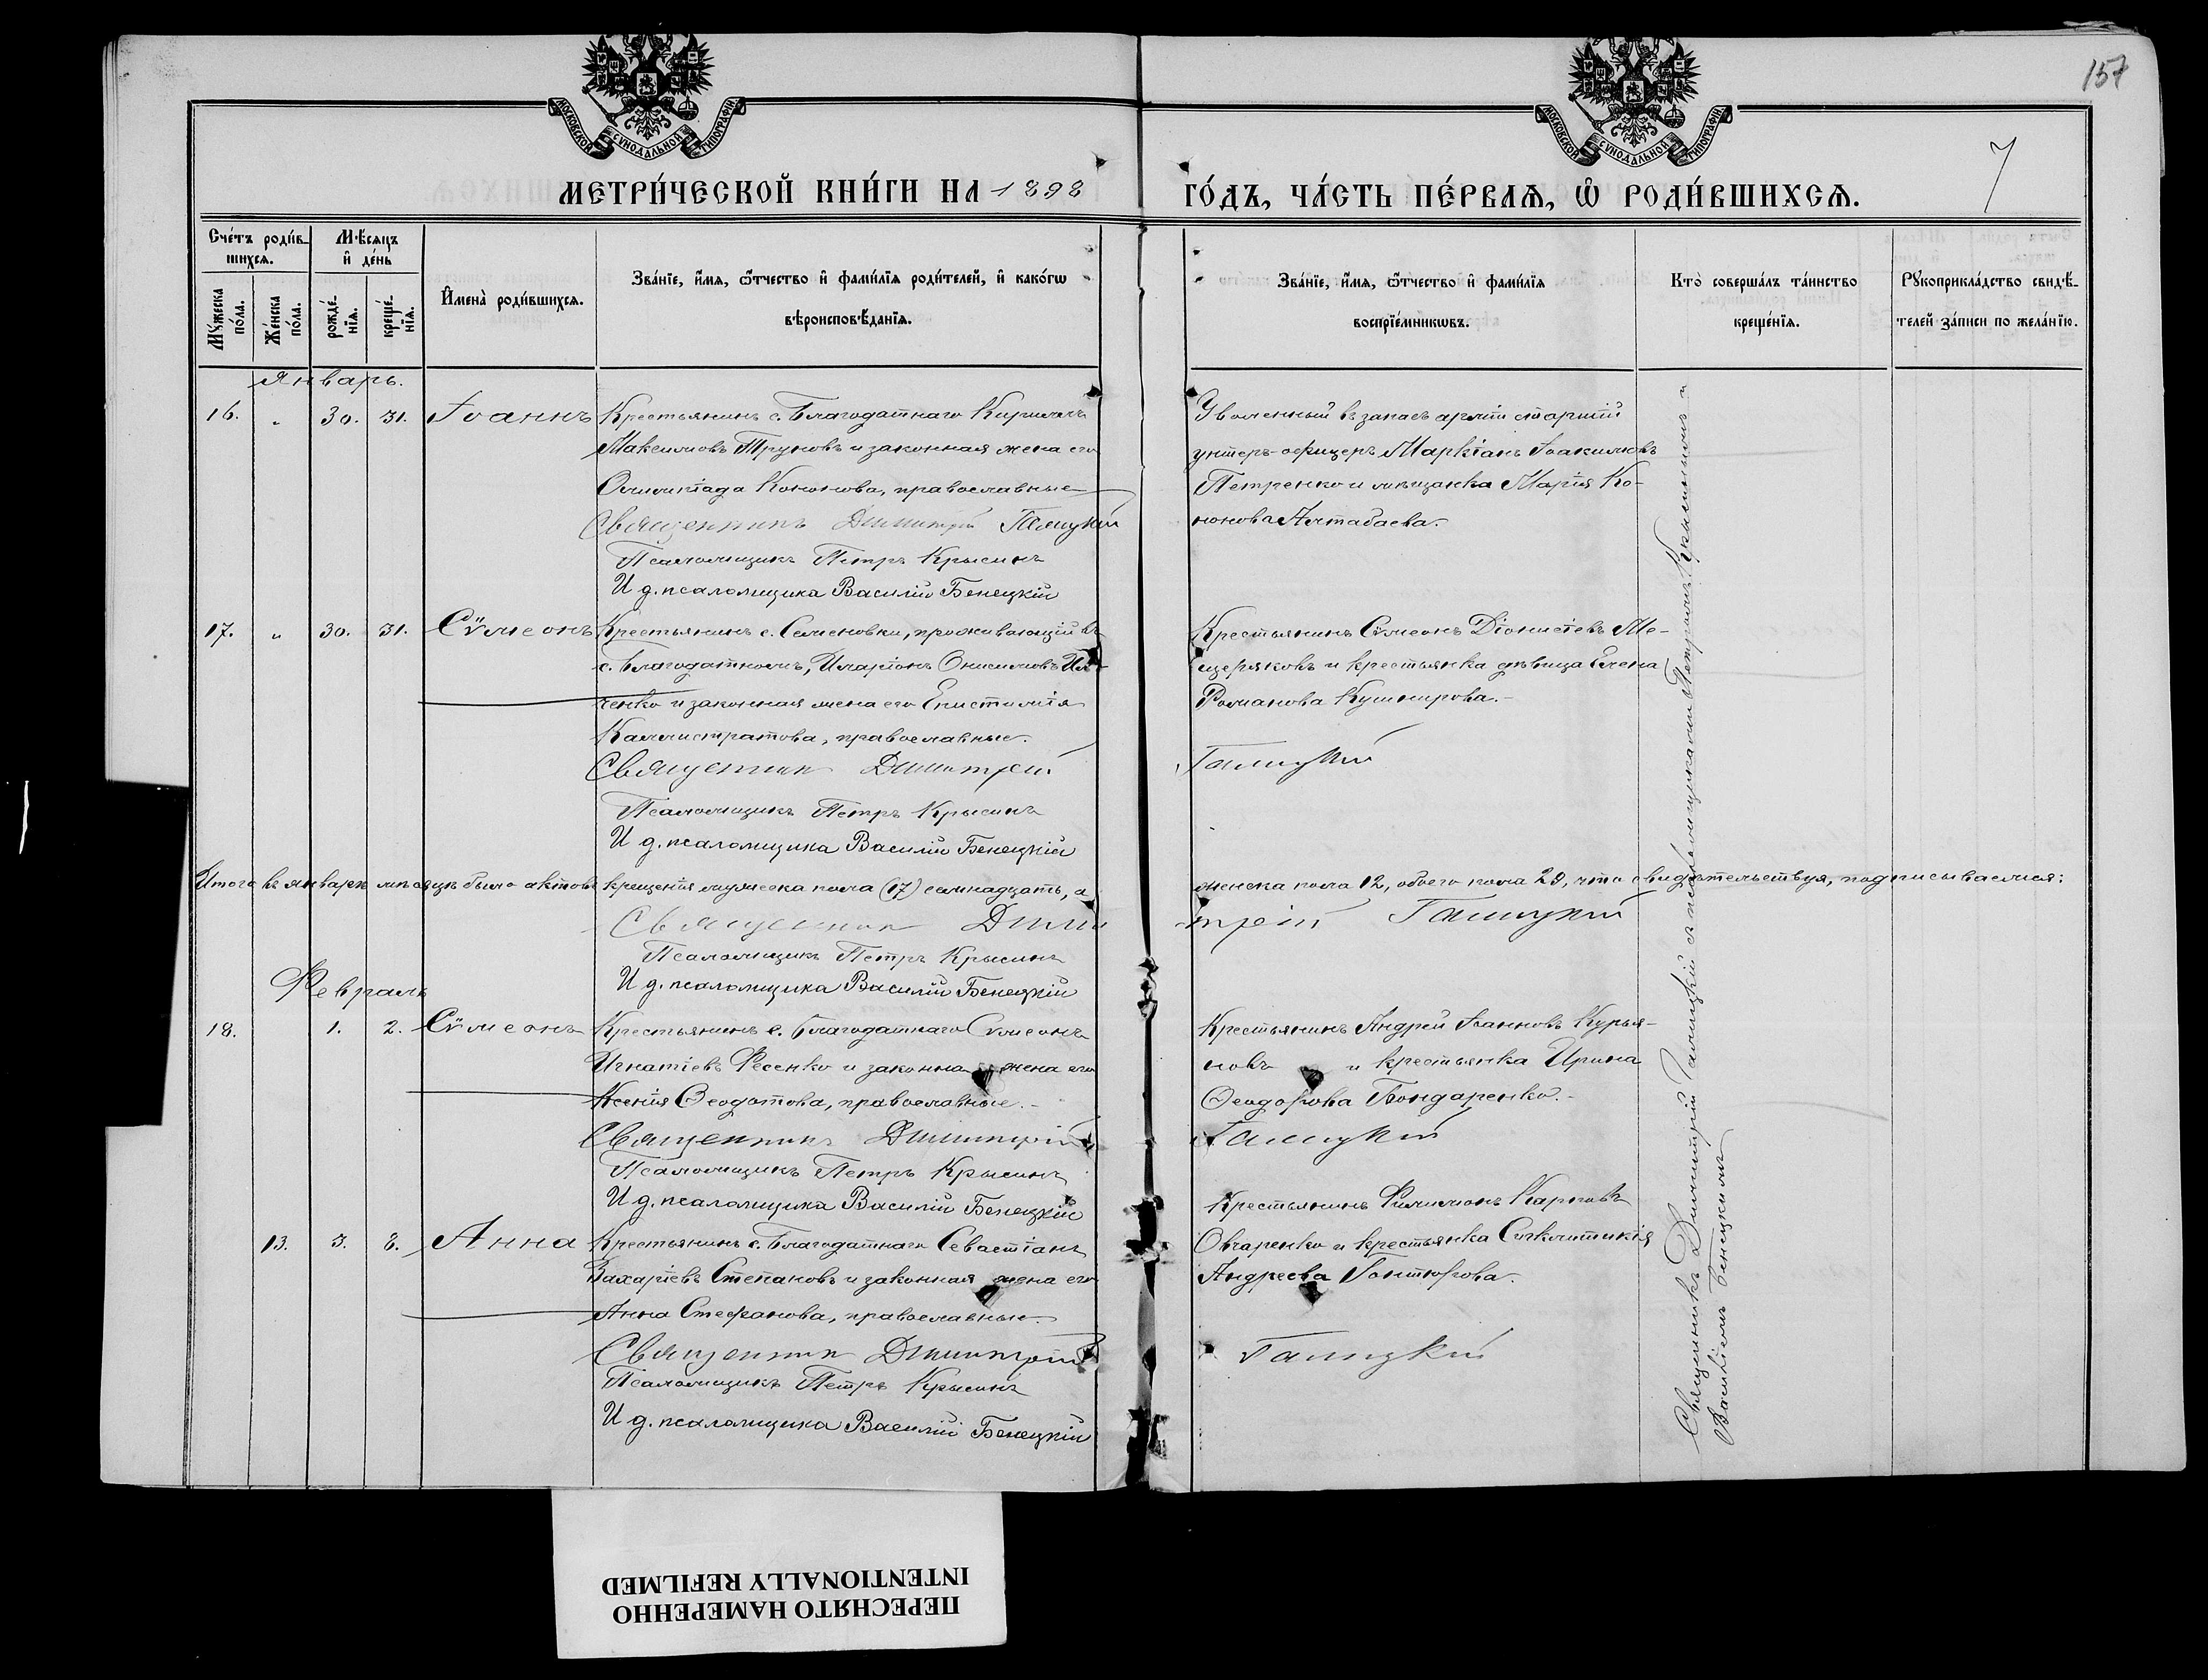 157
7
МОСКОВСКОЙ СѴНОДАЛЬНОЙ ТИПОГРАФІИ
МОСКОВСКОЙ СѴНОДАЛЬНОЙ ТИПОГРАФІИ
МЕТРИ́ЧЕСКОЙ КНИ́ГИ НА 1898 ГО́ДЪ, ЧА́СТЬ ПЕ́РВАѦ, Ѡ҆ РОДИ́ВШИХСѦ.
Сче́тъ роди́в-
шихсѧ.
Мѣ́сѧцъ
и҆ де́нь
Мꙋ́жеска
по́ла.
Же́нска
по́ла.
рожде́-
нїѧ.
креще́-
нїѧ.
И҆мена̀ роди́вшихсѧ.
Зва́нїе, и҆́мѧ, ѻ҆́тчество и҆ фами́лїѧ роди́телей, и҆ како́гѡ
вѣроисповѣ́данїѧ.
Зва́нїе, и҆́мѧ, ѻ҆́тчество и҆ фами́лїѧ
воспрїе́мникѡвъ.
Кто̀ соверша́лъ та́инство
креще́нїѧ.
Рꙋкоприкла́дство свидѣ́-
телей за́писи по жела́нїю.
Январь.
16. „ 30. 31. Іоаннъ
Крестьянинъ с. Благодатнаго Кириллъ
Максимовъ Труновъ и законная жена его
Олимпіада Кононова, православные
Священникъ Димитрій Галицкій
Псаломщикъ Петръ Крысинъ
И д. псаломщика Василій Бенецкій
Уволенный въ запасъ арміи старшій
унтеръ-офицеръ Маркіанъ Іоакимовъ
Петренко и мѣщанка Марія Ко-
нонова Алтабаева.
17. „ 30. 31. Сѵмеонъ
Крестьянинъ с. Семеновки, проживающій въ
с. Благодатномъ, Иларіонъ Онисимовъ Иль-
ченко и законная жена его Епистимія
Каллистратова, православные.
Священник Димитрій Галицкій
Псаломщикъ Петръ Крысинъ
И д. псаломщика Василій Бенецкій
Крестьянинъ Сѵмеонъ Діонисіевъ Ме-
щеряковъ и крестьянка дѣвица Елена
Романова Кушнирова.
Итого въ январѣ мѣсяцѣ было актовъ крещенія мужеска пола (17) семнадцать, а женска пола 12, обоего пола 29, что свидѣтельствуя, подписываемся:
Священник Димитрій Галицкій
Псаломщикъ Петръ Крысинъ
И д. псаломщика Василій Бенецкій
Февраль
18. 1. 2. Сѵмеонъ
Крестьянинъ с. Благодатнаго Сѵмеонъ
Игнатіевъ Фесенко и законна жена его
Ксенія Ѳеодотова, православные.
Священникъ Димитрій Галицкій
Псаломщикъ Петръ Крысинъ
И д. псаломщика Василій Бенецкій
Крестьянинъ Андрей Іоанновъ Курья-
новъ и крестьянка Ирина
Ѳеодорова Бондаренко.
13. 3. 8. Анна
Крестьянинъ с. Благодатнаго Севастіанъ
Захаріевъ Степановъ и законная жена его
Анна Стефанова, православные.
Священник Димитрій Галицкій
Псаломщикъ Петръ Крысинъ
И д. псаломщика Василій Бенецкій
Крестьянинъ Филимонъ Карповъ
Овчаренко и крестьянка Сѵнклитикія
Андреева
Священникъ Димитрій Галицкій съ псаломщиками Петромъ Крысинымъ и
Василіемъ Бенецкимъ
ПЕРЕСНЯТО НАМЕРЕННО
INTENTIONALLY REFILMED